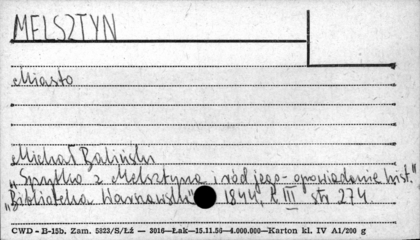 MELSZTYN
Miasto
Michał Baliński
„Spytko z Melsztyna i ród jego - opowiadanie hist."
„Biblioteka Warszawska" 1844, t. III str. 274
CWD - B-15b. Zam. 5823/S/ŁŻ — 3016—Łak—15.11.56—4.000.000—Karton kl. IV A1/200 g